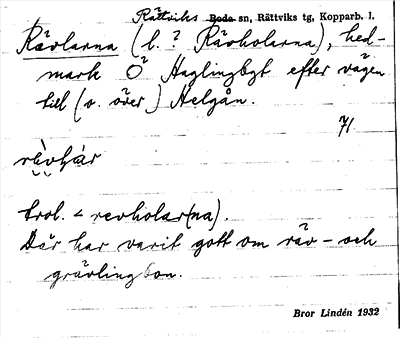 Rättviks Boda sn, Rättviks tg, Kopparb. l.
Rävlarna (l. ? Rävholarna), hed-
mark Ö Haglingbyt efter vägen
till (o. över) Helgån.
71.
trol. < revholar(na).
Där har varit gott om räv- och
grävlingbon.
Bror Lindén 1932